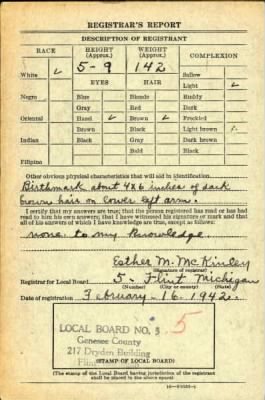 REGISTRAR'S REPORT
DESCRIPTION OF REGISTRANT
RACE HEIGHT (Approx.) WEIGHT (Approx.) COMPLEXION
5-9 142
White ✓ Sallow
EYES HAIR Light ✓
Negro Blue Blonde Ruddy
Gray Red Dark
Oriental Hazel ✓ Brown ✓ Freckled
Brown Black Light brown
Indian Black Gray Dark brown
Bald Black
Filipino
Other obvious physical characteristics that will aid in identification
Birthmark about 4x6 inches of dark
brown hair on lower left arm.
I certify that my answers are true; that the person registered has read or has had
read to him his own answers; that I have witnessed his signature or mark and that
all of his answers of which I have knowledge are true, except as follows:
none to my knowledge.
Esther M. McKinley
(Signature of registrar)
Registrar for Local Board 5 - Flint Michigan
(Number) (City or county) (State)
Date of registration February - 16 - 1942
LOCAL BOARD NO. 5
Genesee County
217 Dryden Building
Flint
(STAMP OF LOCAL BOARD)
(The stamp of the Local Board having jurisdiction of the registrant
shall be placed in the above space)